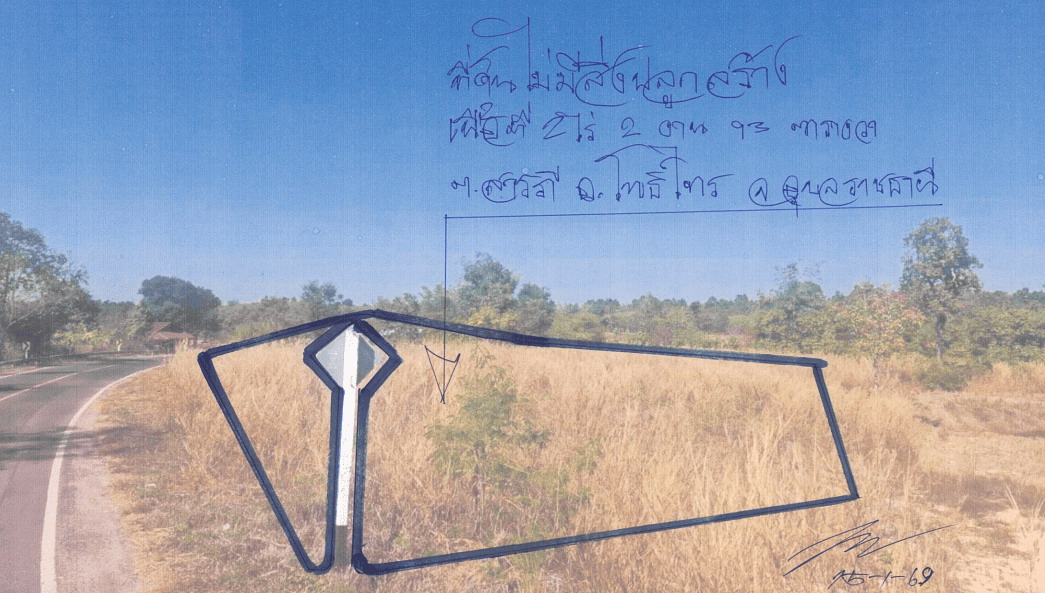 ที่ดินไม่มีสิ่งปลูกสร้าง
เนื้อที่ 2 ไร่ 2 งาน 93 ตารางวา
ต.สารภี อ.โพธิ์ไทร จ.อุบลราชธานี
15-1-69